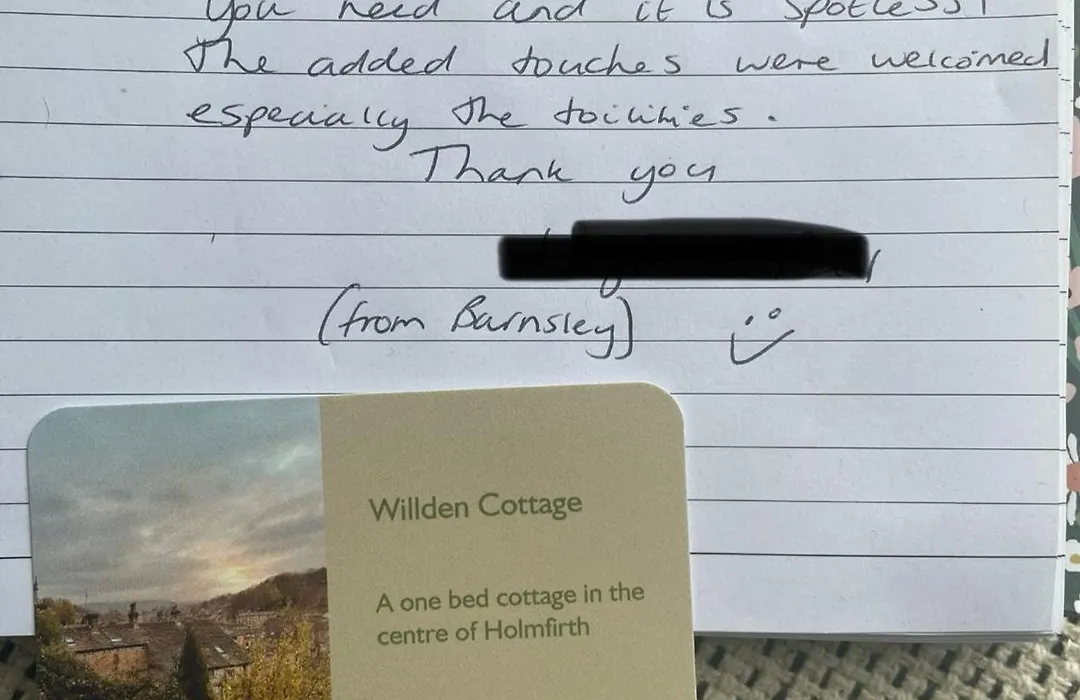 you need and it is spotless!
The added touches were welcomed
especially the toiletries.
Thank you
(from Barnsley)
Willden Cottage
A one bed cottage in the
centre of Holmfirth